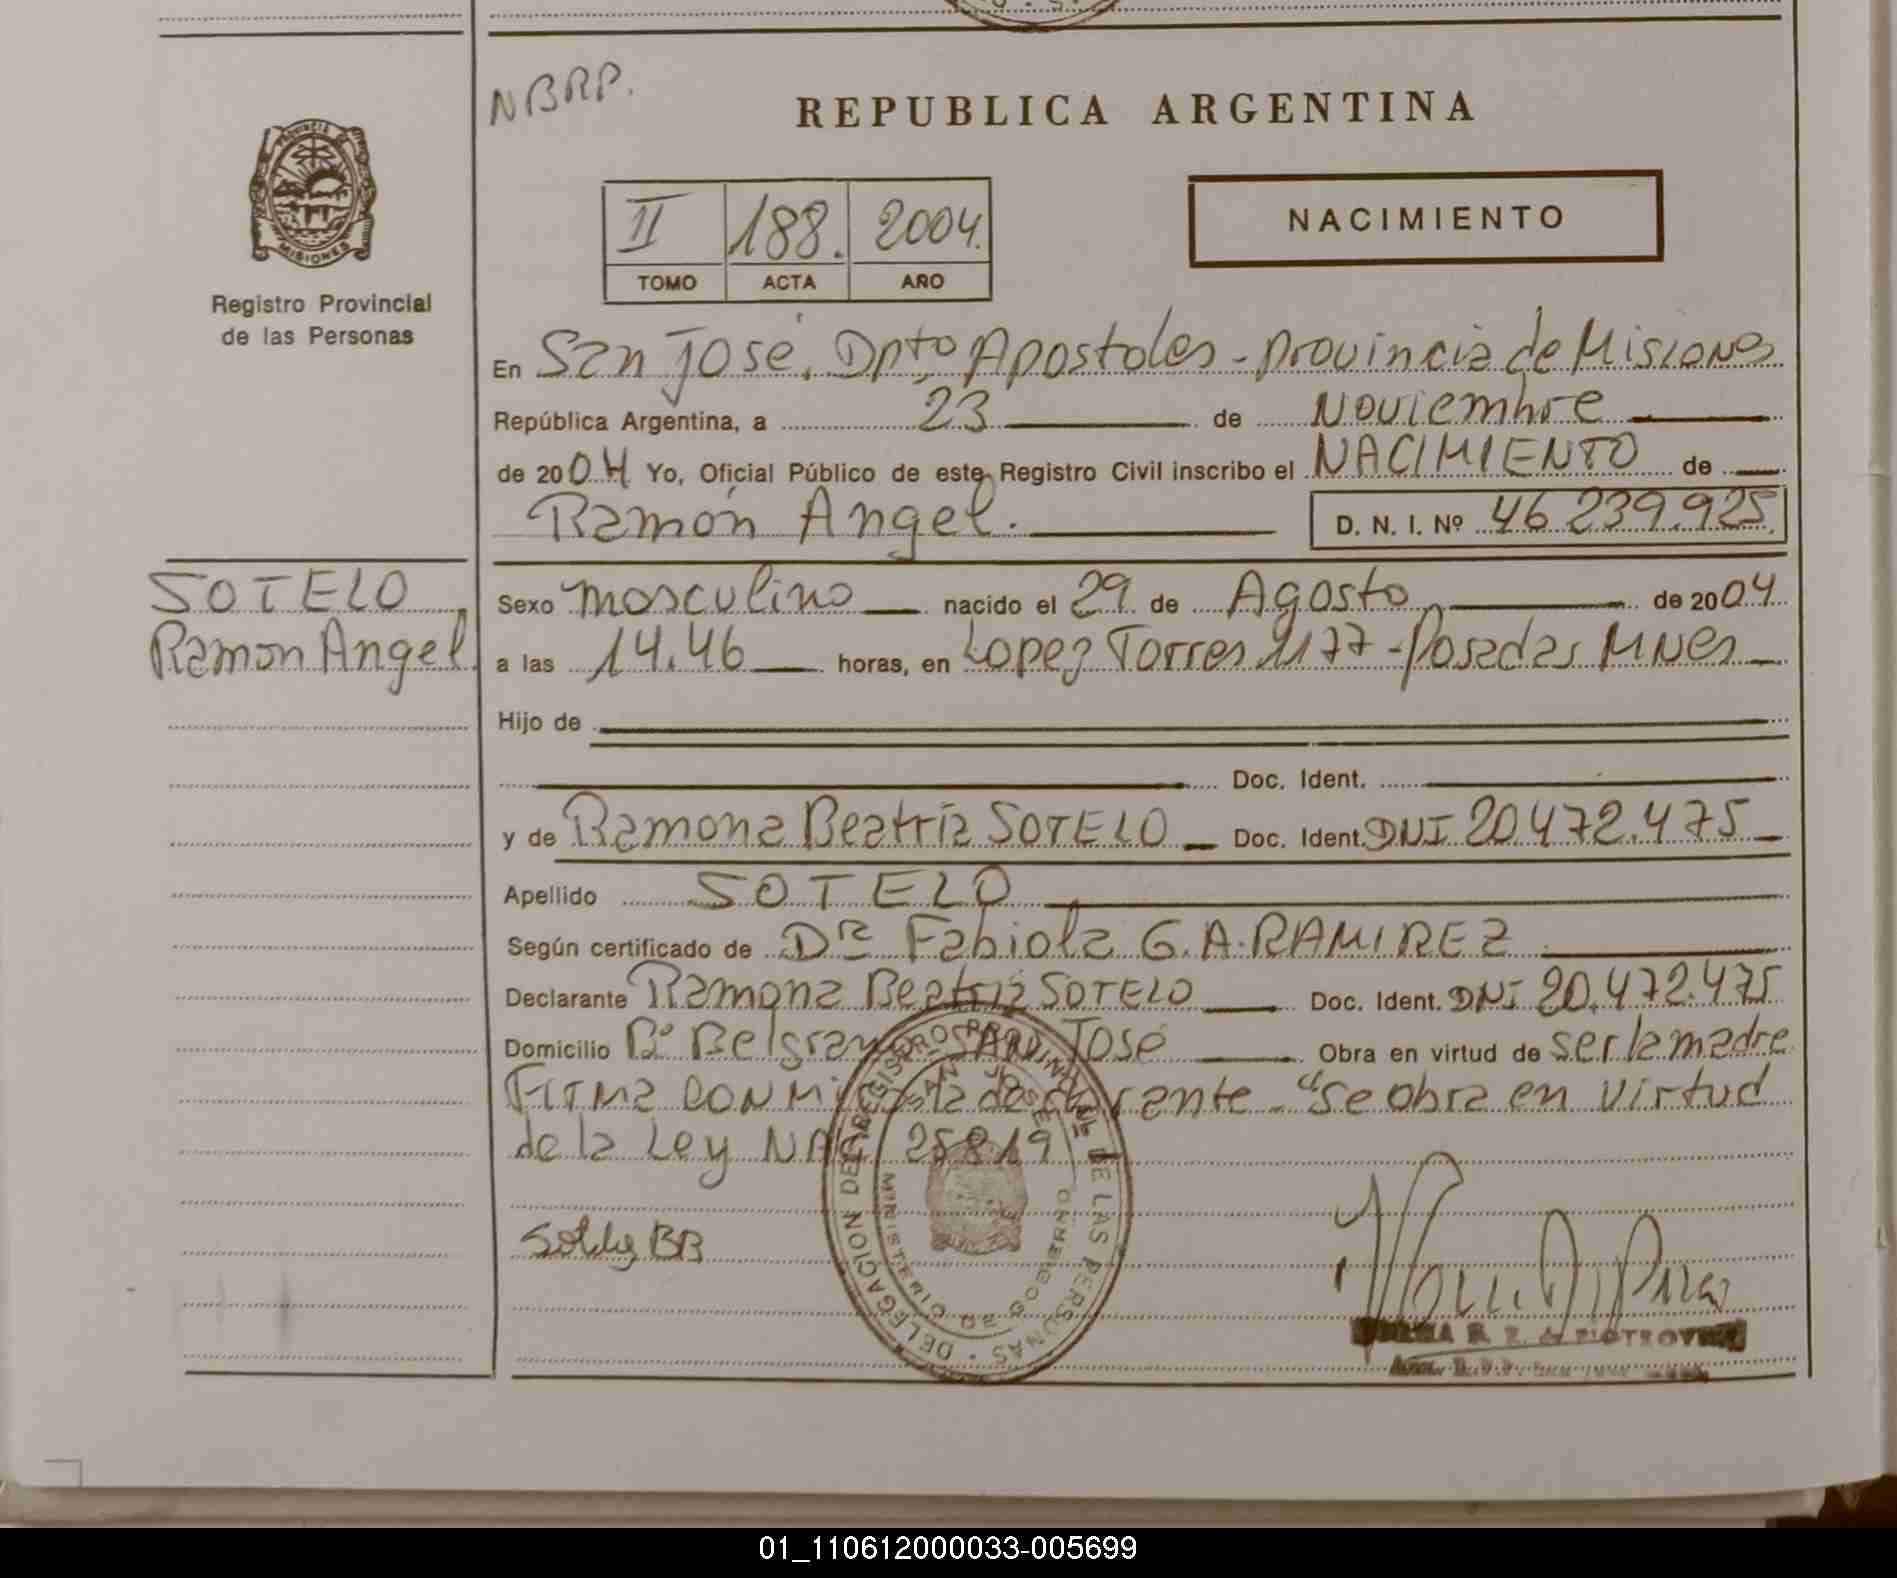 NBRP.
REPUBLICA ARGENTINA
PROVINCIA DE
MISIONES
Registro Provincial
de las Personas
II 188. 2004.
TOMO ACTA AÑO
NACIMIENTO
En San José, Dpto Apostoles - Provincia de Misiones
República Argentina, a 23 de Noviembre
de 2004 Yo, Oficial Público de este Registro Civil inscribo el NACIMIENTO de
Ramón Angel. D. N. I. Nº 46 239.925
SOTELO
Ramon Angel
Sexo masculino nacido el 29 de Agosto de 2004
a las 14.46 horas, en Lopez Torres 1177 - Posadas MNes
Hijo de
Doc. Ident.
y de Ramona Beatriz SOTELO Doc. Ident. DNI 20.472.475
Apellido SOTELO
Según certificado de Dra Fabiola G.A. RAMIREZ
Declarante Ramona Beatriz SOTELO Doc. Ident. DNI 20.472.475
Domicilio Bº Belgrano SAN José Obra en virtud de ser la madre
Firma CON Mi la declarante - "Se obra en virtud
de la Ley NAC 25819
DELEGACION DEL REGISTRO PROVINCIAL DE LAS PERSONAS
SAN JOSE
MINISTERIO DE GOBIERNO
01_110612000033-005699